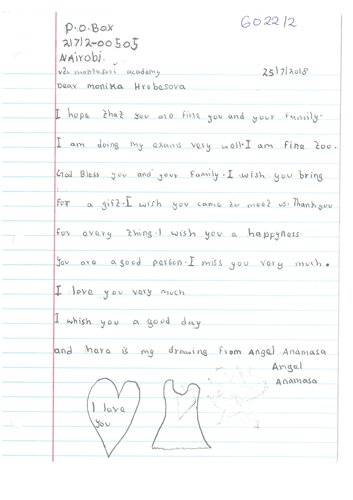 G02212
P.O.Box
21712-00505
NAirobi.
v2k montessori academy
25/7/2018
Dear monika Hrobesova
I hope that you are fine you and your Family.
I am doing my exams very well.I am fine too.
God Bless you and your Family.I wish you bring
for a gift.I wish you came to meet us.Thank you
for every thing.I wish you a happyness
you are a good person.I miss you very much.
I love you very much
I whish you a good day
and here is my drawing from Angel Anamasa
Angel
Anamasa
I love
you